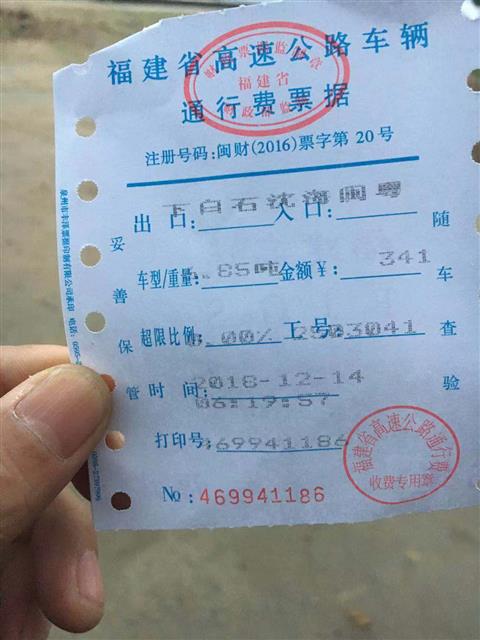 福建省高速公路车辆
通行费票据
福建省
注册号码:闽财(2016)票字第 20号
下白石 沈海闽粤
出口: 入口:
车型/重量: .85吨 金额¥: 341
超限比例: 0.00% 工号: 2503041
时间: 2018-12-14
06:19:57
打印号: 469941186
No: 469941186
妥善保管
随车查验
福建省高速公路通行费
收费专用章
泉州市丰泽票据印制有限公司承印 电话: 0595-